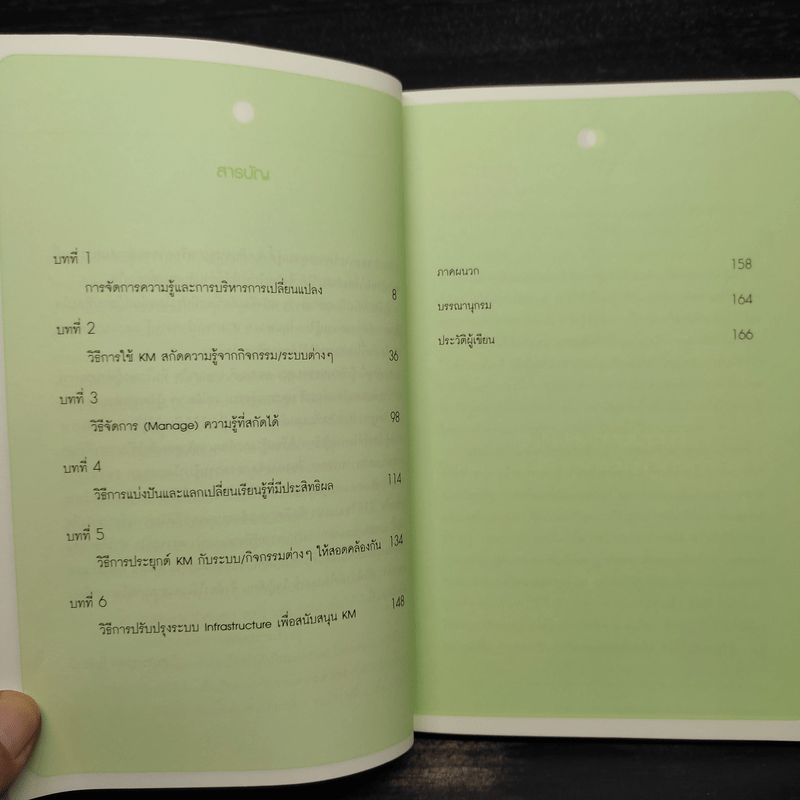 สารบัญ
บทที่ 1
การจัดการความรู้และการบริหารการเปลี่ยนแปลง 8
บทที่ 2
วิธีการใช้ KM สกัดความรู้จากกิจกรรม/ระบบต่างๆ 36
บทที่ 3
วิธีจัดการ (Manage) ความรู้ที่สกัดได้ 98
บทที่ 4
วิธีการแบ่งปันและแลกเปลี่ยนเรียนรู้ที่มีประสิทธิผล 114
บทที่ 5
วิธีการประยุกต์ KM กับระบบ/กิจกรรมต่างๆ ให้สอดคล้องกัน 134
บทที่ 6
วิธีการปรับปรุงระบบ Infrastructure เพื่อสนับสนุน KM 148
ภาคผนวก 158
บรรณานุกรม 164
ประวัติผู้เขียน 166